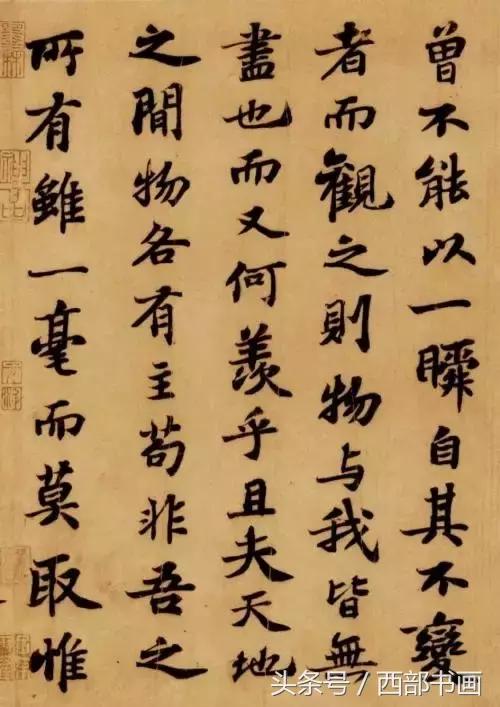 曾不能以一瞬自其不變
者而觀之則物与我皆無
盡也而又何羨乎且夫天地
之間物各有主茍非吾之
所有雖一毫而莫取惟
头条号 / 西部书画